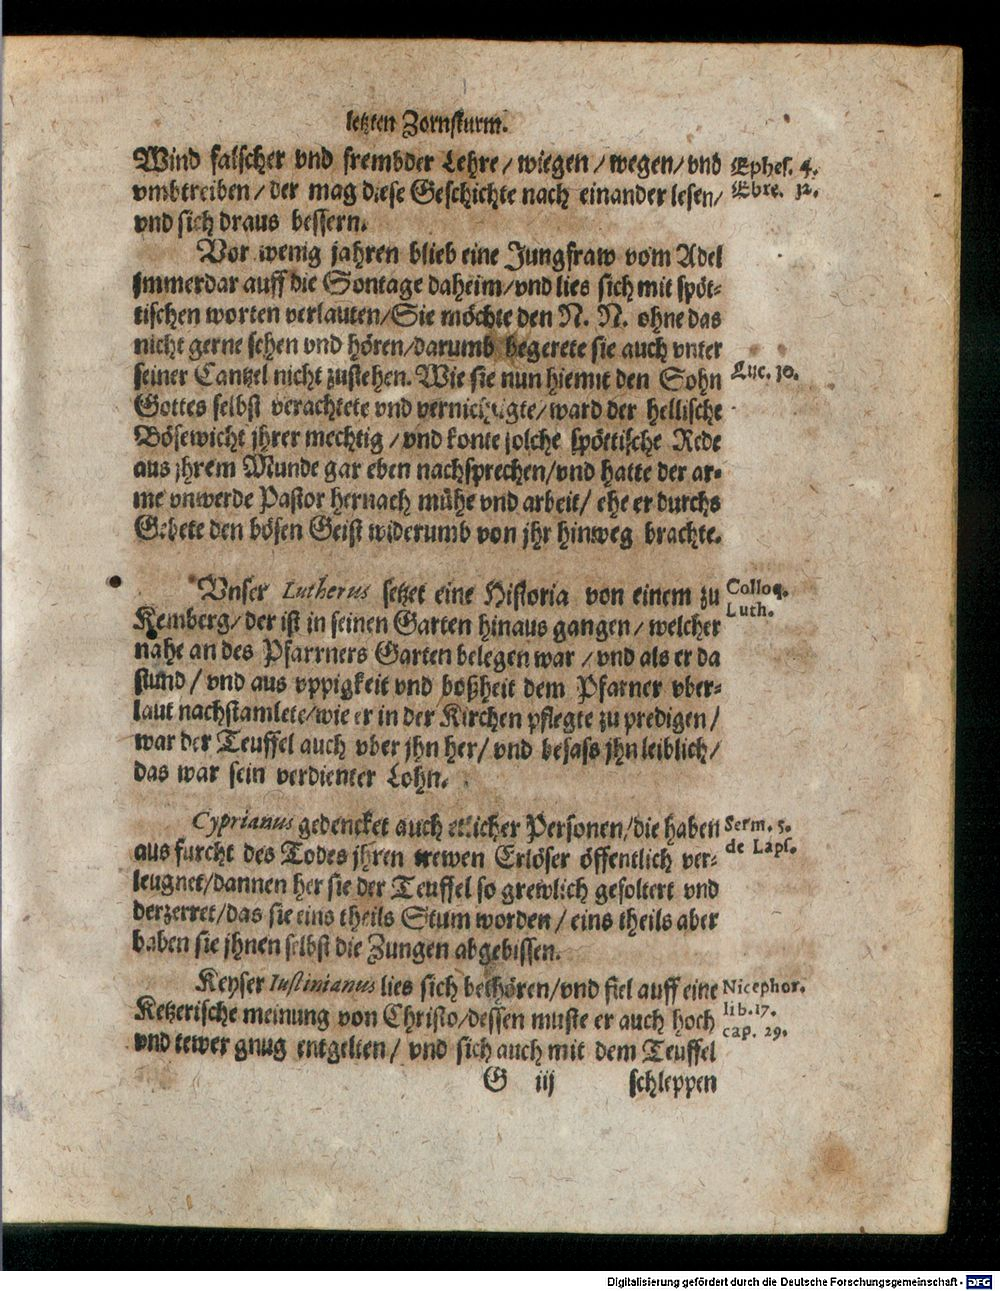 letzten Zornsturm.
Wind falscher vnd frembder Lehre/ wiegen/ wegen/ vnd
Ephes. 4.
vmbtreiben/ der mag diese Geschichte nach einander lesen/
Ebre. 12.
vnd sich draus bessern.
Vor wenig jahren blieb eine Jungfraw vom Adel
jmmerdar auff die Sontage daheim/ vnd lies sich mit spöt-
tischen worten verlauten/ Sie möchte den N. N. ohne das
nicht gerne sehen vnd hören/ darumb begerete sie auch vnter
seiner Cantzel nicht zustehen. Wie sie nun hiemit den Sohn
Luc. 10.
Gottes selbst verachtete vnd vernichtigte/ ward der hellische
Bösewicht jhrer mechtig/ vnd konte solche spöttische Rede
aus jhrem Munde gar eben nachsprechen/ vnd hatte der ar-
me vnwerde Pastor hernach mühe vnd arbeit/ ehe er durchs
Gebete den bösen Geist widerumb von jhr hinweg brachte.
Vnser Lutherus setzet eine Historia von einem zu
Colloq.
Luth.
Kemberg/ der ist in seinen Garten hinaus gangen/ welcher
nahe an des Pfarrners Garten belegen war/ vnd als er da
stund/ vnd aus vppigkeit vnd boßheit dem Pfarner vber-
laut nachstamlete/ wie er in der Kirchen pflegte zu predigen/
war der Teuffel auch vber jhn her/ vnd besass jhn leiblich/
das war sein verdienter Lohn.
Cyprianus gedencket auch etlicher Personen/ die haben
Serm. 5.
de Laps.
aus furcht des Todes jhren trewen Erlöser öffentlich ver-
leugnet/ dannen her sie der Teuffel so grewlich gefoltert vnd
derzerret/ das sie eins theils Stum worden/ eins theils aber
haben sie jhnen selbst die Zungen abgebissen.
Keyser Iustinianus lies sich bethören/ vnd fiel auff eine
Nicephor.
lib. 17.
cap. 29.
Ketzerische meinung von Christo/ dessen muste er auch hoch
vnd tewer gnug entgelten/ vnd sich auch mit dem Teuffel
G iij schleppen
Digitalisierung gefördert durch die Deutsche Forschungsgemeinschaft - DFG